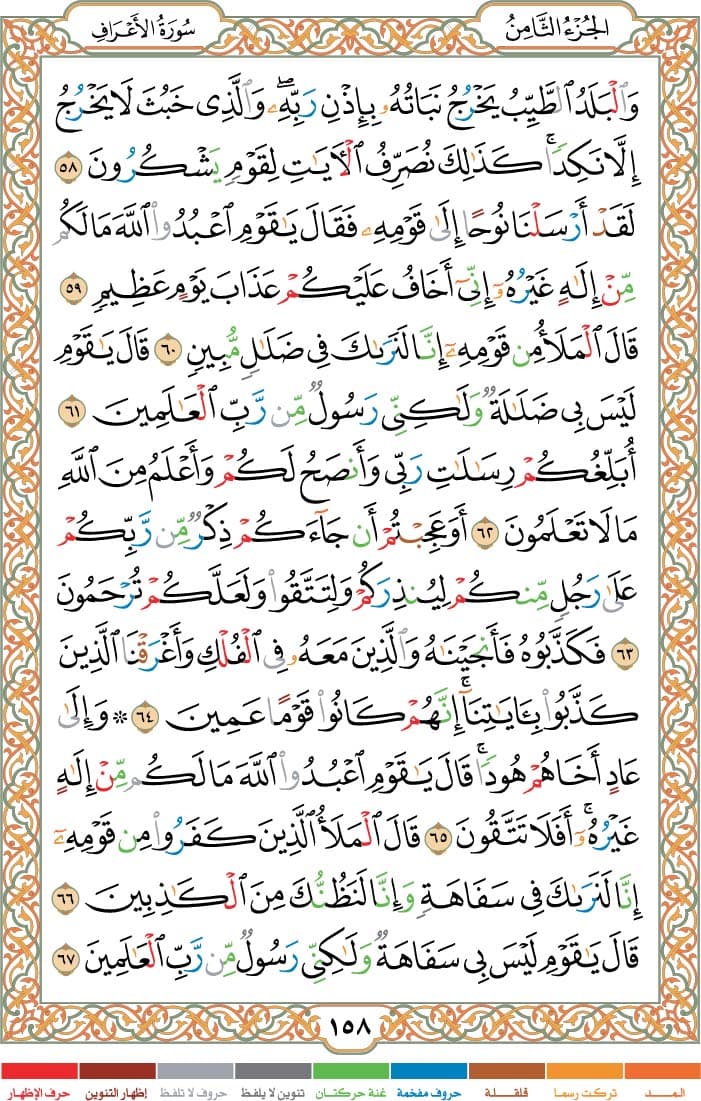 الجُزْءُ الثَّامِنُ
سُورَةُ الأَعْرَافِ
وَٱلْبَلَدُ ٱلطَّيِّبُ يَخْرُجُ نَبَاتُهُۥ بِإِذْنِ رَبِّهِۦۖ وَٱلَّذِى خَبُثَ لَا يَخْرُجُ
إِلَّا نَكِدًاۚ كَذَٰلِكَ نُصَرِّفُ ٱلْءَايَٰتِ لِقَوْمٍ يَشْكُرُونَ ٥٨
لَقَدْ أَرْسَلْنَا نُوحًا إِلَىٰ قَوْمِهِۦ فَقَالَ يَٰقَوْمِ ٱعْبُدُوا۟ ٱللَّهَ مَا لَكُم
مِّنْ إِلَٰهٍ غَيْرُهُۥٓ إِنِّىٓ أَخَافُ عَلَيْكُمْ عَذَابَ يَوْمٍ عَظِيمٍ ٥٩
قَالَ ٱلْمَلَأُ مِن قَوْمِهِۦٓ إِنَّا لَنَرَىٰكَ فِى ضَلَٰلٍ مُّبِينٍ ٦٠ قَالَ يَٰقَوْمِ
لَيْسَ بِى ضَلَٰلَةٌ وَلَٰكِنِّى رَسُولٌ مِّن رَّبِّ ٱلْعَٰلَمِينَ ٦١
أُبَلِّغُكُمْ رِسَٰلَٰتِ رَبِّى وَأَنصَحُ لَكُمْ وَأَعْلَمُ مِنَ ٱللَّهِ
مَا لَا تَعْلَمُونَ ٦٢ أَوَعَجِبْتُمْ أَن جَآءَكُمْ ذِكْرٌ مِّن رَّبِّكُمْ
عَلَىٰ رَجُلٍ مِّنكُمْ لِيُنذِرَكُمْ وَلِتَتَّقُوا۟ وَلَعَلَّكُمْ تُرْحَمُونَ
٦٣ فَكَذَّبُوهُ فَأَنجَيْنَٰهُ وَٱلَّذِينَ مَعَهُۥ فِى ٱلْفُلْكِ وَأَغْرَقْنَا ٱلَّذِينَ
كَذَّبُوا۟ بِـَٔايَٰتِنَآۚ إِنَّهُمْ كَانُوا۟ قَوْمًا عَمِينَ ٦٤ ۞ وَإِلَىٰ
عَادٍ أَخَاهُمْ هُودًاۚ قَالَ يَٰقَوْمِ ٱعْبُدُوا۟ ٱللَّهَ مَا لَكُم مِّنْ إِلَٰهٍ
غَيْرُهُۥٓۚ أَفَلَا تَتَّقُونَ ٦٥ قَالَ ٱلْمَلَأُ ٱلَّذِينَ كَفَرُوا۟ مِن قَوْمِهِۦٓ
إِنَّا لَنَرَىٰكَ فِى سَفَاهَةٍ وَإِنَّا لَنَظُنُّكَ مِنَ ٱلْكَٰذِبِينَ ٦٦
قَالَ يَٰقَوْمِ لَيْسَ بِى سَفَاهَةٌ وَلَٰكِنِّى رَسُولٌ مِّن رَّبِّ ٱلْعَٰلَمِينَ ٦٧
١٥٨
المــد تركت رسما قلقــلة حروف مفخمة غنة حركتان تنوين لا يلفظ حروف لا تلفظ إظهار التنوين حرف الإظهار